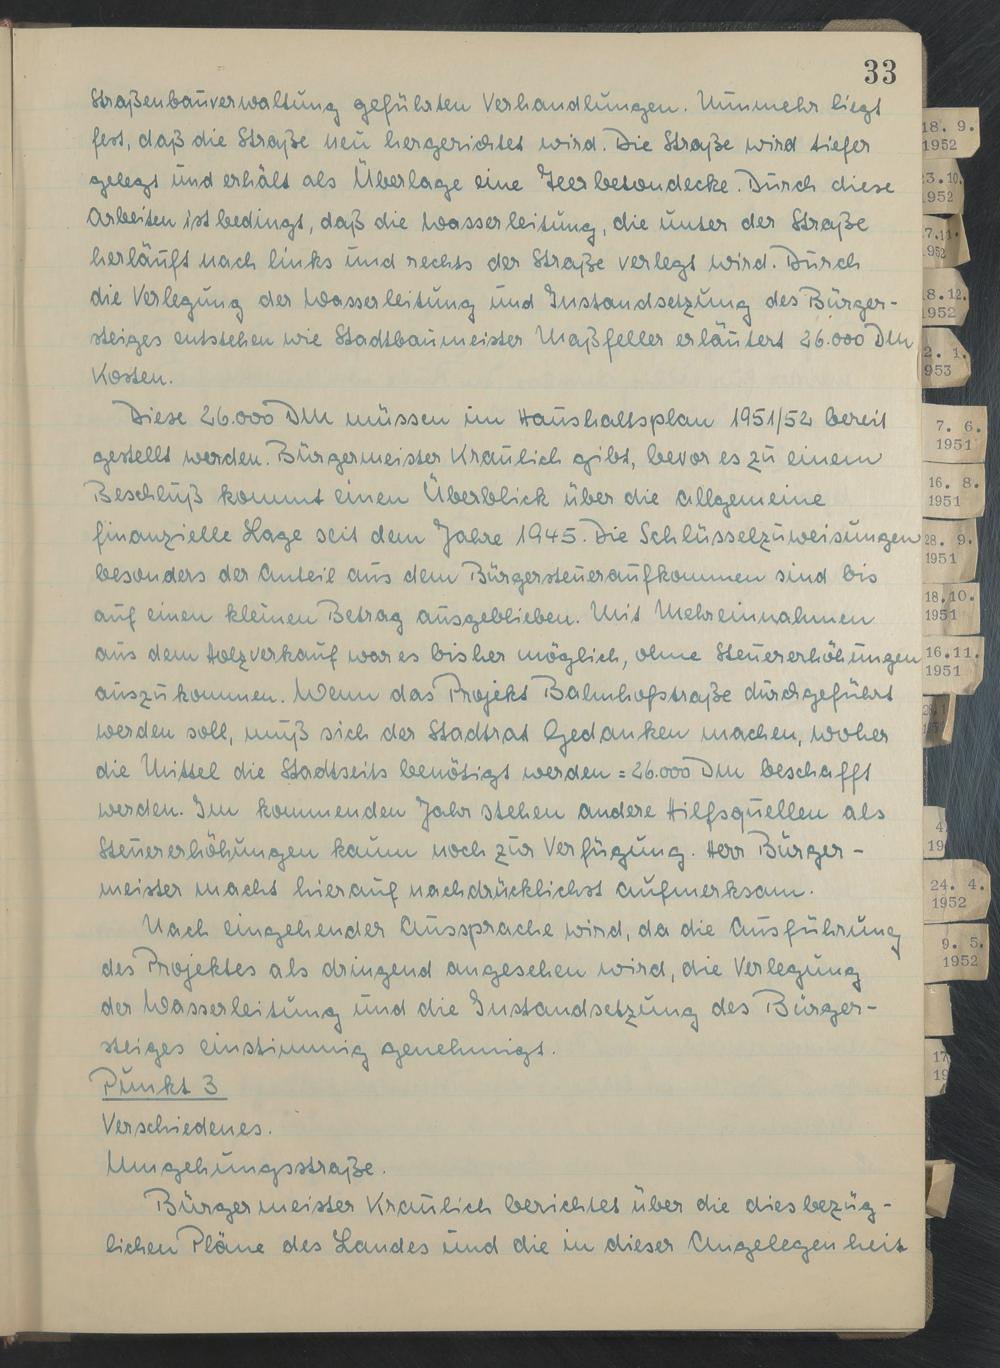 33
Straßenbauverwaltung geführten Verhandlungen. Nunmehr liegt
fest, daß die Straße neu hergerichtet wird. Die Straße wird tiefer
gelegt und erhält als Überlage eine Teerbetondecke. Durch diese
Arbeiten ist bedingt, daß die Wasserleitung, die unter der Straße
herläuft nach links und rechts der Straße verlegt wird. Durch
die Verlegung der Wasserleitung und Instandsetzung des Bürger-
steiges entstehen wie Stadtbaumeister Maßfeller erläutert 26.000 DM
Kosten.
Diese 26.000 DM müssen im Haushaltsplan 1951/52 bereit
gestellt werden. Bürgermeister Kraulich gibt, bevor es zu einem
Beschluß kommt einen Überblick über die allgemeine
finanzielle Lage seit dem Jahre 1945. Die Schlüsselzuweisungen
besonders der Anteil aus dem Bürgersteueraufkommen sind bis
auf einen kleinen Betrag ausgeblieben. Mit Mehreinnahmen
aus dem Holzverkauf war es bisher möglich, ohne Steuererhöhungen
auszukommen. Wenn das Projekt Bahnhofstraße durchgeführt
werden soll, muß sich der Stadtrat Gedanken machen, woher
die Mittel die Stadtseits benötigt werden = 26.000 DM beschafft
werden. Im kommenden Jahr stehen andere Hilfsquellen als
Steuererhöhungen kaum noch zur Verfügung. Herr Bürger-
meister macht hierauf nachdrücklichst aufmerksam.
Nach eingehender Aussprache wird, da die Ausführung
des Projektes als dringend angesehen wird, die Verlegung
der Wasserleitung und die Instandsetzung des Bürger-
steiges einstimmig genehmigt.
Punkt 3
Verschiedenes.
Umgehungsstraße.
Bürgermeister Kraulich berichtet über die diesbezüg-
lichen Pläne des Landes und die in dieser Angelegenheit
18. 9.
1952
3.10.
952
7.11.
952
8.12.
952
2. 1.
953
7. 6.
1951
16. 8.
1951
28. 9.
1951
18.10.
1951
16.11.
1951
4
19
24. 4.
1952
9. 5.
1952
17
19